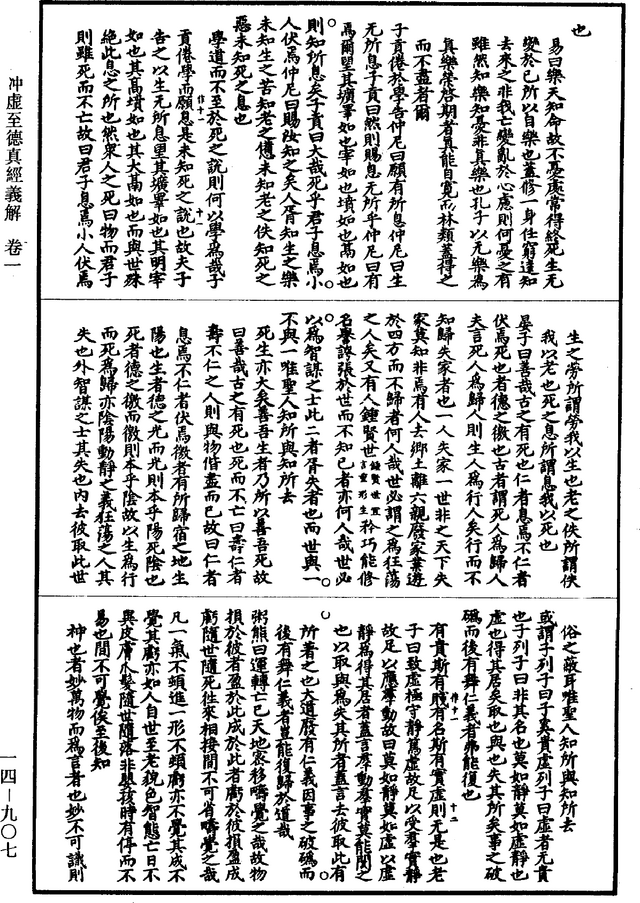 也
易曰樂天知命故不憂處常得終死生无
變於己所以自樂也蓋修一身任窮達知
去來之非我亡變亂於心慮則何憂之有
雖然知樂知憂非真樂也孔子以无樂為
真樂榮啓期者真能自寬而林類蓋得之
而不盡者爾
子貢倦於學告仲尼曰願有所息仲尼曰生
无所息子貢曰然則賜息无所乎仲尼曰有
焉爾望其壙睪如也宰如也墳如也鬲如也
則知所息矣子貢曰大哉死乎君子息焉小
人伏焉仲尼曰賜汝知之矣人胥知生之樂
未知生之苦知老之憊未知老之佚知死之
惡未知死之息也
學道而不至於死之說則何以學為哉子
貢倦學而願息是未知死之說也故夫子
告之以生无所息望其壙睪如也其明宰
如也其高墳如也其大鬲如也而與世殊
絕此息之所也然衆人之死曰物而君子
則雖死而不亡故曰君子息焉小人伏焉
生之勞所謂勞我以生也老之佚所謂佚
我以老也死之息所謂息我以死也
晏子曰善哉古之有死也仁者息焉不仁者
伏焉死也者德之徼也古者謂死人為歸人
夫言死人為歸人則生人為行人矣行而不
知歸失家者也一人失家一世非之天下失
家莫知非焉有人去鄉土離六親廢家業遊
於四方而不歸者何人哉世必謂之為狂蕩
之人矣又有人鍾賢世鍾賢世宜言重形生矜巧能修
名譽誇張於世而不知已者亦何人哉世必
以為智謀之士此二者胥失者也而世與一
不與一唯聖人知所與知所去
死生亦大矣善吾生者乃所以善吾死故
曰善哉古之有死也死而不亡曰壽仁者
壽不仁之人則與物偕盡而已故曰仁者
息焉不仁者伏焉徼者有所歸宿之地生
陽也生者德之光而光則本乎陽死陰也
死者德之徼而徼則本乎陰故以生為行
而死為歸亦陰陽動靜之義狂蕩之人其
失也外智謀之士其失也內去彼取此世
俗之蔽耳唯聖人知所與知所去
或謂子列子曰子奚貴虛列子曰虛者无貴
也子列子曰非其名也莫如靜莫如虛靜也
虛也得其居矣取也與也失其所矣事之破
䃣而後有舞仁義者弗能復也
有貴斯有賤有名斯有實虛則无是也老
子曰致虛極守靜篤虛故足以受羣實靜
故足以應羣動故曰莫如靜莫如虛以虛
靜為得其居者蓋言羣動羣實莫能閡之
也以取與為失其所者蓋言去彼取此有
所著之也大道廢有仁義因事之破䃣而
後有舞仁義者豈能復歸於道哉
粥熊曰運轉亡已天地密移疇覺之哉故物
損於彼者盈於此成於此者虧於彼損盈成
虧隨世隨死往來相接間不可省疇覺之哉
凡一氣不頓進一形不頓虧亦不覺其成不
覺其虧亦如人自世至老貌色智態亡日不
異皮膚爪髮隨世隨落非嬰孩時有停而不
易也間不可覺俟至後知
神也者妙萬物而為言者也妙不可識則
作十一
十
作十一
十二
冲虛至德真經義解 卷一
一四—九〇七